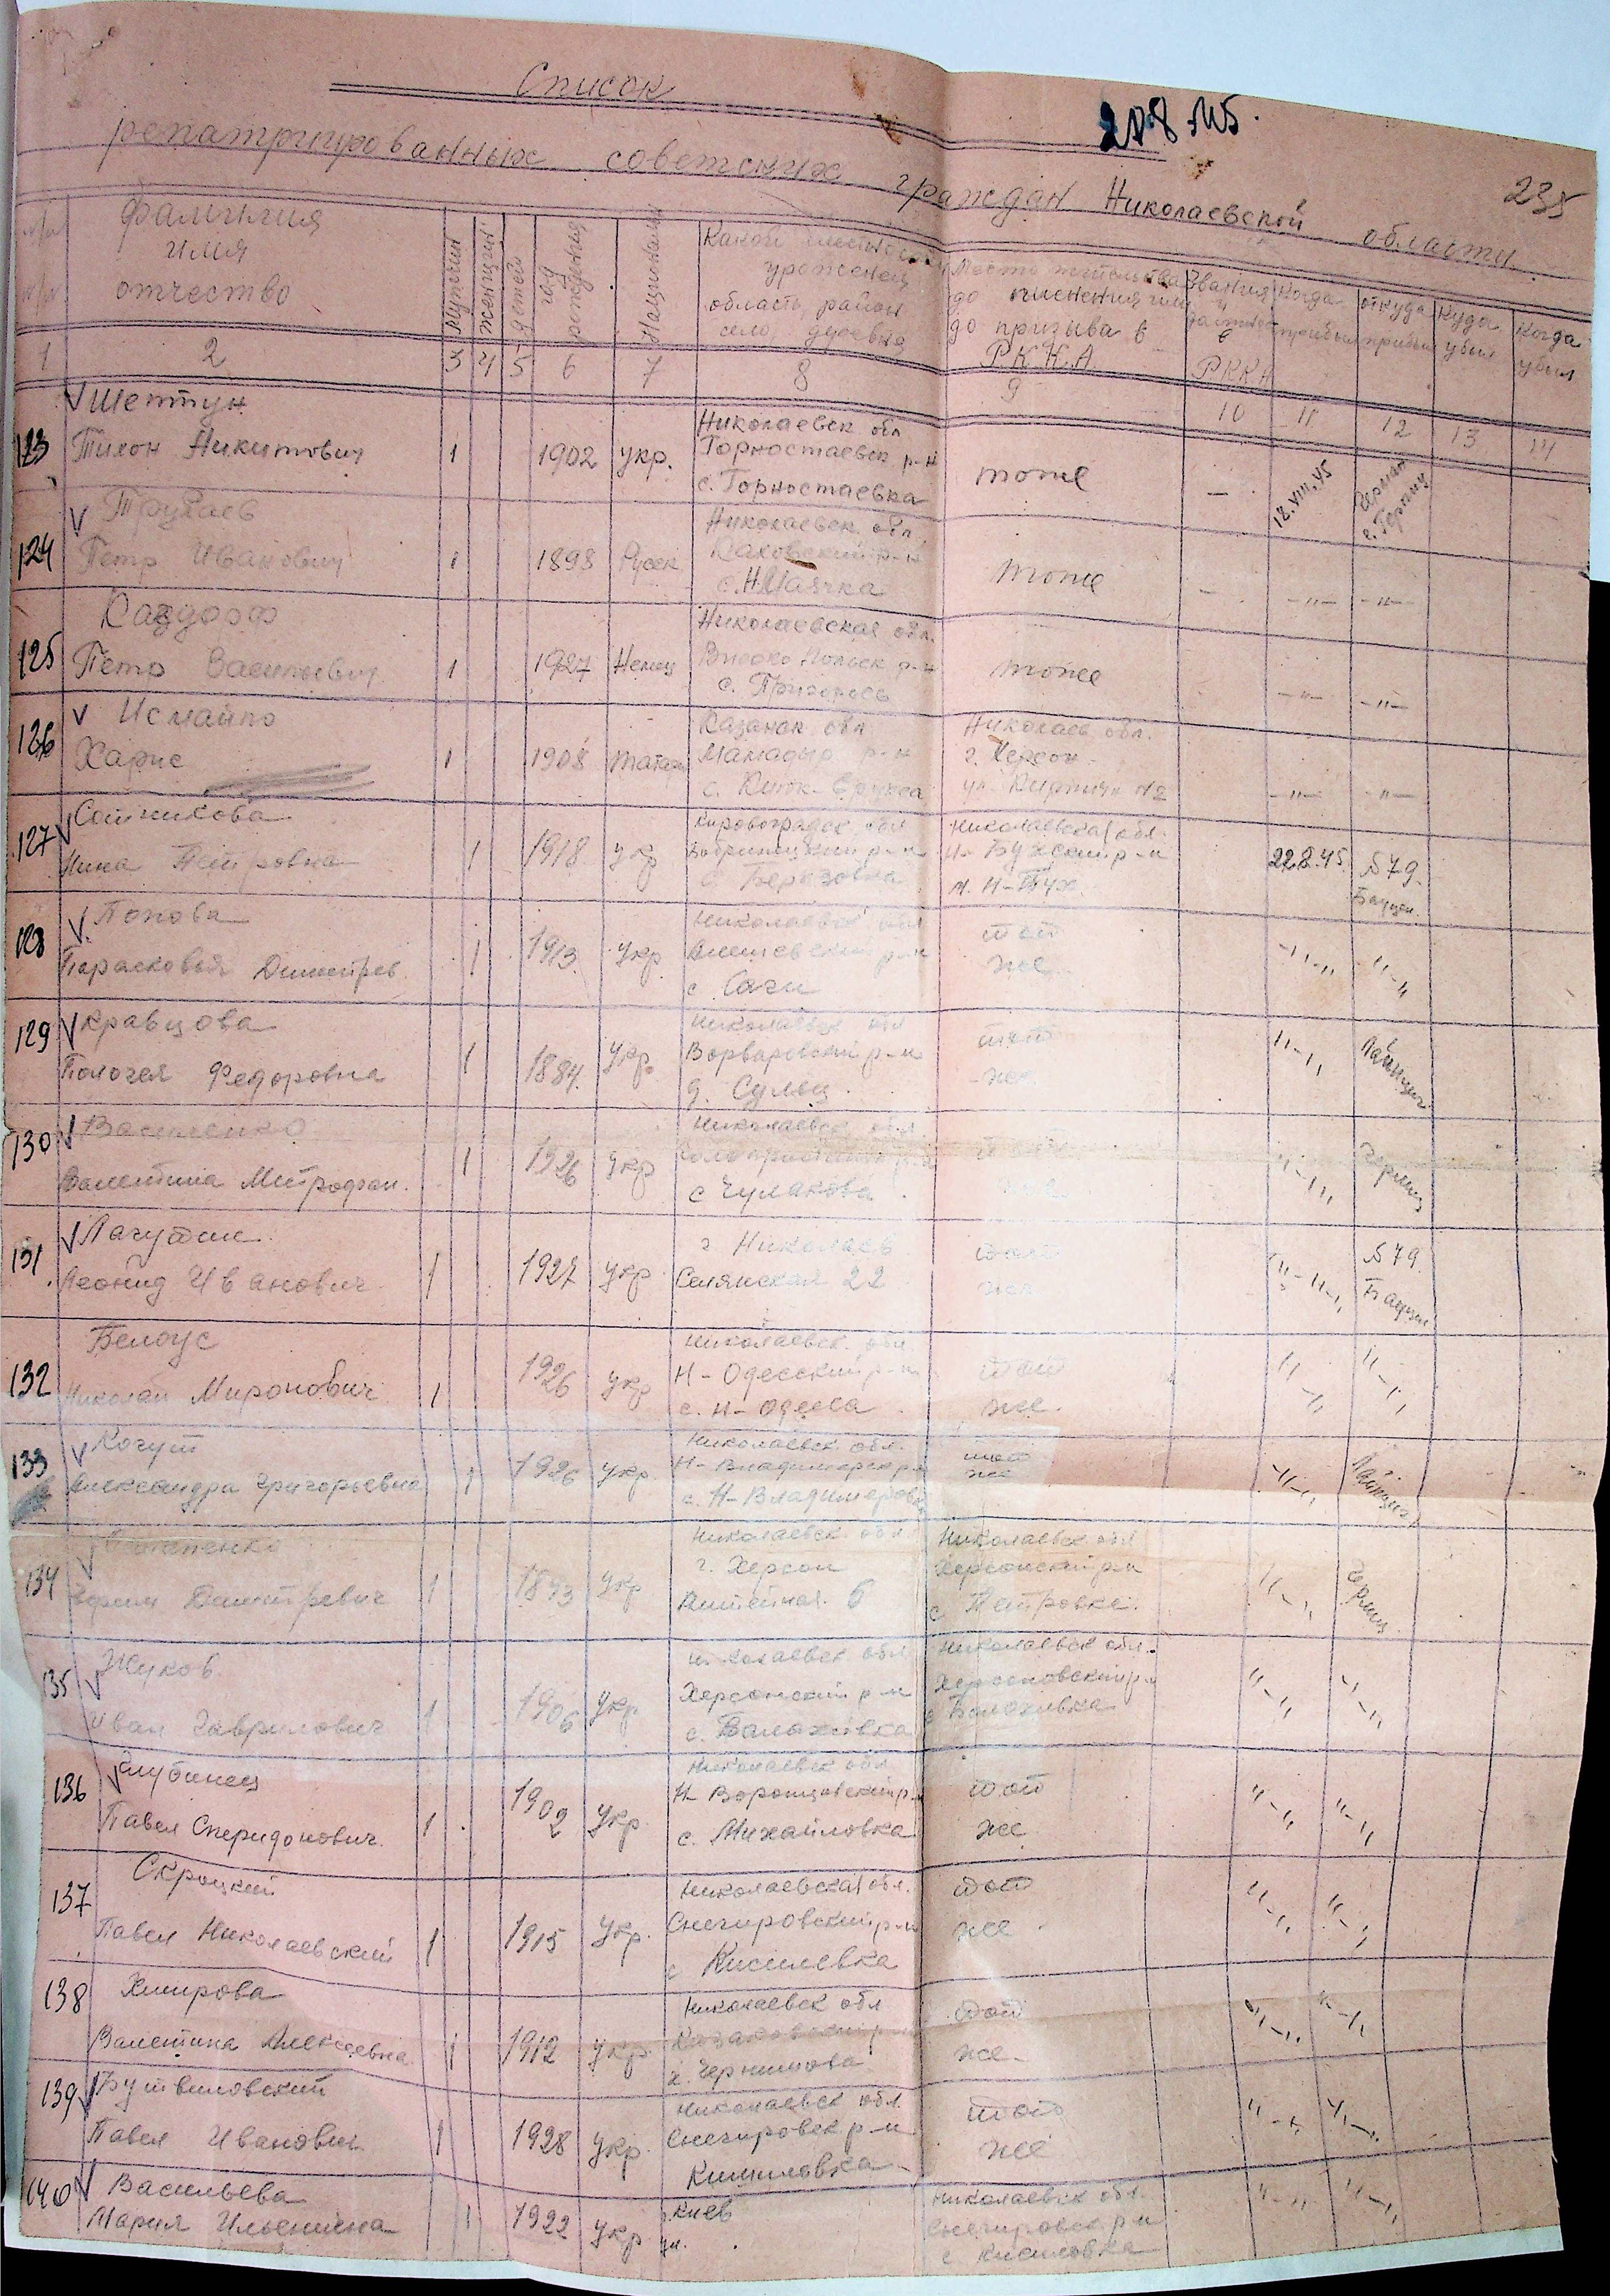 Список
208.45.
235
репатриированных советских граждан Николаевской области
п/п
Фамилия
имя
отчество
Мужчин
Женщин
Детей
год рождения
Национальн
Какой местности
уроженец
область, район
село, деревня
Место жительства
до пленения или
до призыва в
Р.К.К.А.
Звания
РККА
Когда
прибыл
откуда
прибыл
Куда
убыл
Когда
убыл
1 2 3 4 5 6 7 8 9 10 11 12 13 14
123 Шептун
Тихон Никитович 1 1902 укр.
Николаевск обл
Горностаевск р-н
с. Горностаевка
тоже — 18.VIII.45
г. Герлиц
124 Трухаев
Петр Иванович 1 1898 Русск
Николаевск. обл.
Каховский р-н
с. Н.Маячка
тоже - -"- -"-
125
Петр Васильевич 1 1927 Немец
Николаевская обл.
Высоко Польск р-н
с.
тоже -"- -"-
126
Харис 1 1908 татар
Казанск обл
Мамадыш р-н
с.
Николаев. обл.
г. Херсон
ул. №2
-"- -"-
127 Сотникова
Нина Петровна 1 1918 укр
Кировоградск. обл
Бобринецкий р-н
с. Березовка
Николаевская обл.
Н-Бугский р-н
м. Н-Буг.
22.8.45. №79.
Бауцен.
128 Попова
Парасковья Дмитрев. 1 1913 укр
Николаевск обл
р-н
с. Саги
тот
же
"-" "-"
129 Кравцова
Пелагея Федоровна 1 1884. укр.
Николаевск обл
Варваровский р-н
д.
тот
же
"-"
130 Василенко
Валентина Митрофан. 1 1926 укр
Николаевск обл
с Чулакова
тот
же
"-" Герлиц
131 Лагутин
Леонид Иванович 1 1927 укр
г Николаев
Селянская 22
тот
же
"-"-" №79.
Бауцен
132 Белоус
Николай Миронович 1 1926 укр
Николаевск. обл.
Н-Одесский р-н
с. Н-Одесса
тот
же.
"-" "-"
133 Когут
Александра Григорьевна 1 1926 укр.
Николаевск. обл.
Н-Владимирск р-н
с. Н-Владимировка
тот
же
"-"
134
Дмитревич 1 1893 укр
Николаевск обл
г. Херсон
6
Николаевск обл
Херсонский р-н
с. Петровка.
"-" Герлиц
135 Жуков
Иван Гаврилович 1 1906 укр.
Николаевск обл
Херсонский р-н
с.
Николаевск обл.
р-н
"-" "-"
136
Павел Спиридонович. 1 1902 укр.
Николаевск обл
Н-Воронцовский р-н
с. Михайловка
тот
же
"-" "-"
137 Скроцкий
Павел Николаевский 1 1915 укр.
Николаевская обл.
Снегировский р-н
с Киселевка
тот
же
"-" "-"
138 Хмирова
Валентина Алексеевна 1 1912 укр.
Николаевск обл
х.
тот
же.
"-" "-"
139 Бутвиловский
Павел Иванович 1 1928 укр.
Николаевск обл.
Снегировск р-н
Кисиловка
тот
же
"-" "-"
140 Васильева
Мария Ильенична 1 1922 укр
г. Киев
ул.
Николаевск обл.
Снегировск р-н
с. Кисиловка
"-" "-"